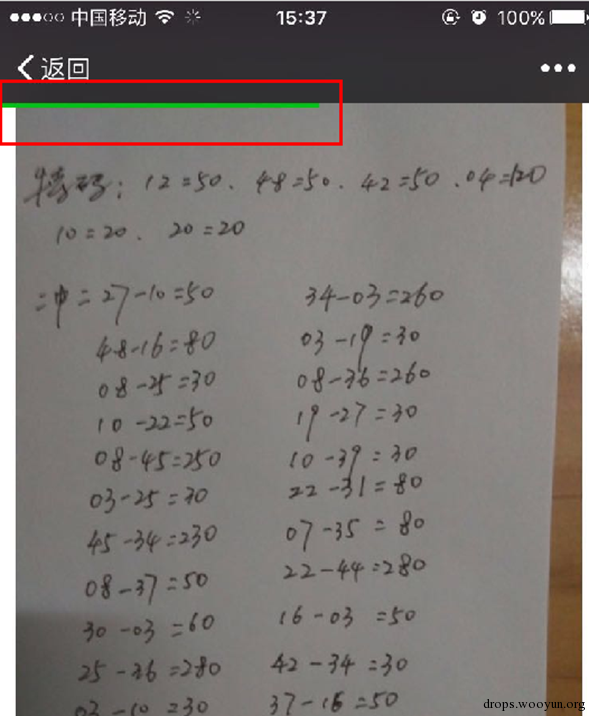 中国移动 15:37 100%
返回
特码: 12=50. 48=50. 42=50. 04=120
10=20. 20=20
二中二 27-10=50 34-03=260
48-16=80 03-19=30
08-25=30 08-36=260
10-22=50 19-27=30
08-45=250 10-39=30
03-25=30 22-31=80
45-34=230 07-35=80
08-37=50 22-44=280
30-03=60 16-03=50
25-36=280 42-34=30
03-10=30 37-16=50
drops.wooyun.org